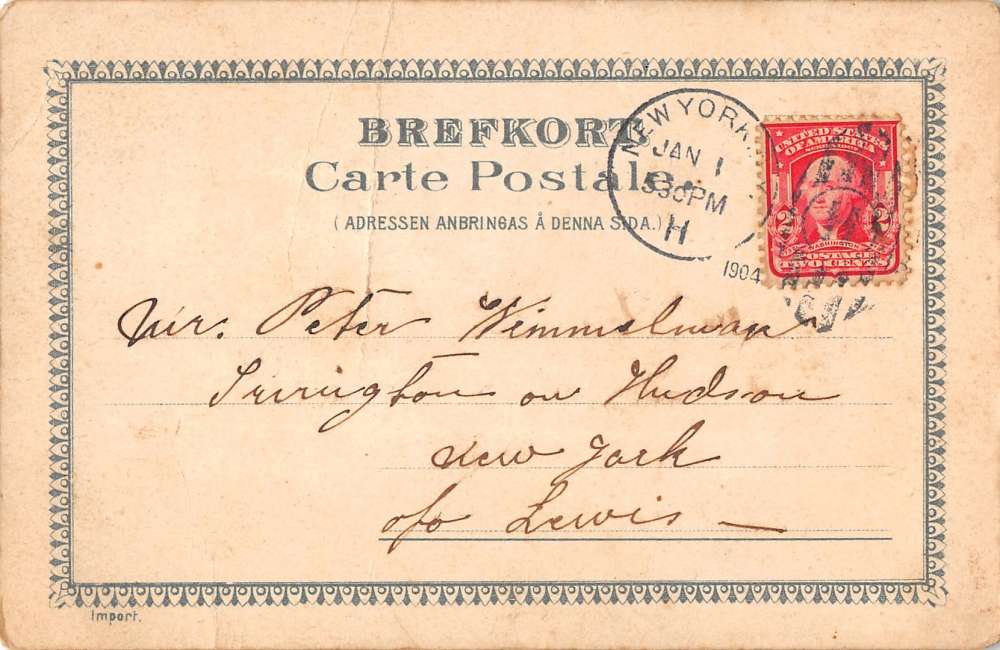 BREFKORT
Carte Postale.
(ADRESSEN ANBRINGAS Å DENNA SIDA.)
NEW YORK
JAN 1
530PM
H
1904
UNITED STATES
OF AMERICA
2 2
WASHINGTON
POSTAGE
TWO CENTS
Mr. Peter Wimmelman
Irvington on Hudson
New York
c/o Lewis —
Import.